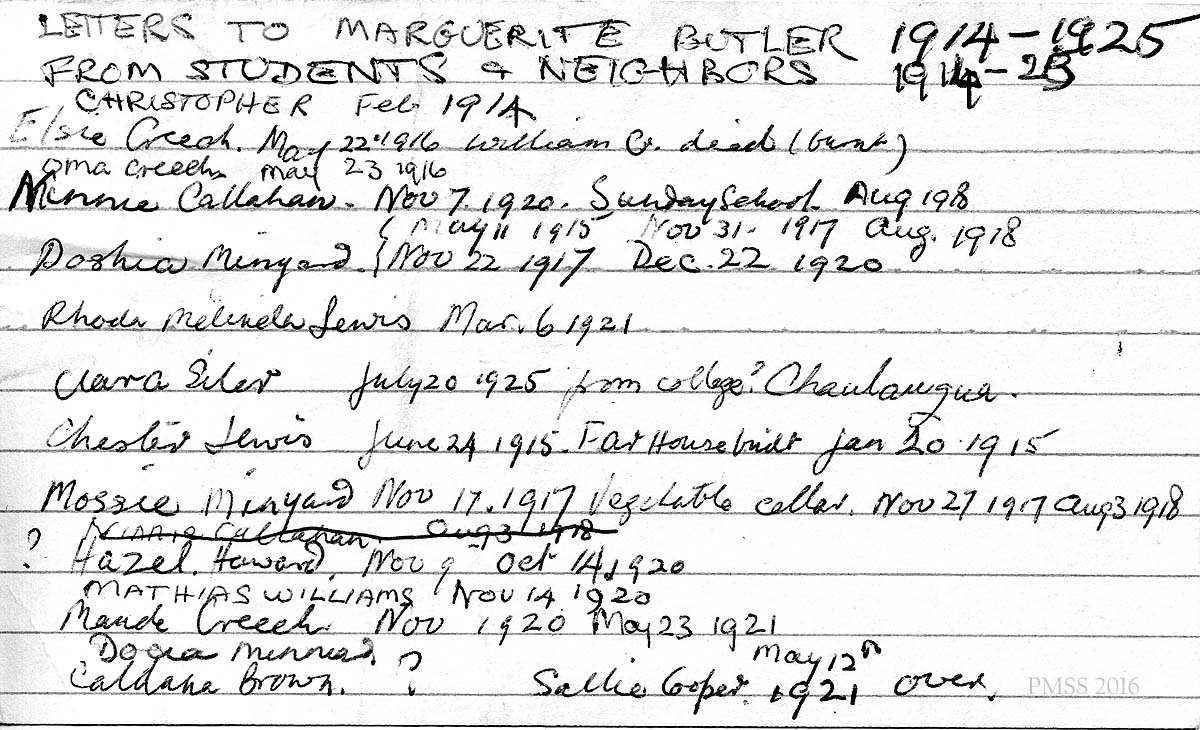 LETTERS TO MARGUERITE BUTLER 1914-1925
FROM STUDENTS & NEIGHBORS 1914-23
CHRISTOPHER Feb 1914
Elsie Creech. May 22 1916 William C. died (burnt)
Oma Creech May 23 1916
Minnie Callahan. Nov 7. 1920. Sunday School Aug 1918
( May 11 1915 Nov 31. 1917 Aug. 1918
Doshia Minyard. { Nov 22 1917 Dec. 22 1920
Rhoda Melinda Lewis Mar. 6 1921
Clara Siler July 20 1925 from college? Chautauqua.
Chester Lewis June 24 1915. Far House built Jan 20 1915
Mossie Minyard Nov 17. 1917 Vegetable cellar. Nov 27 1917 Aug 3 1918
Minnie Callahan. Aug 3 1918
? Hazel. Howard. Nov 9 Oct 14, 1920
MATHIAS WILLIAMS Nov 14 1920
Maude Creech. Nov 1920 May 23 1921
Docia Minniard
May 12th
Caldana Brown. ? Sallie Cooper. 1921 over.
PMSS 2016